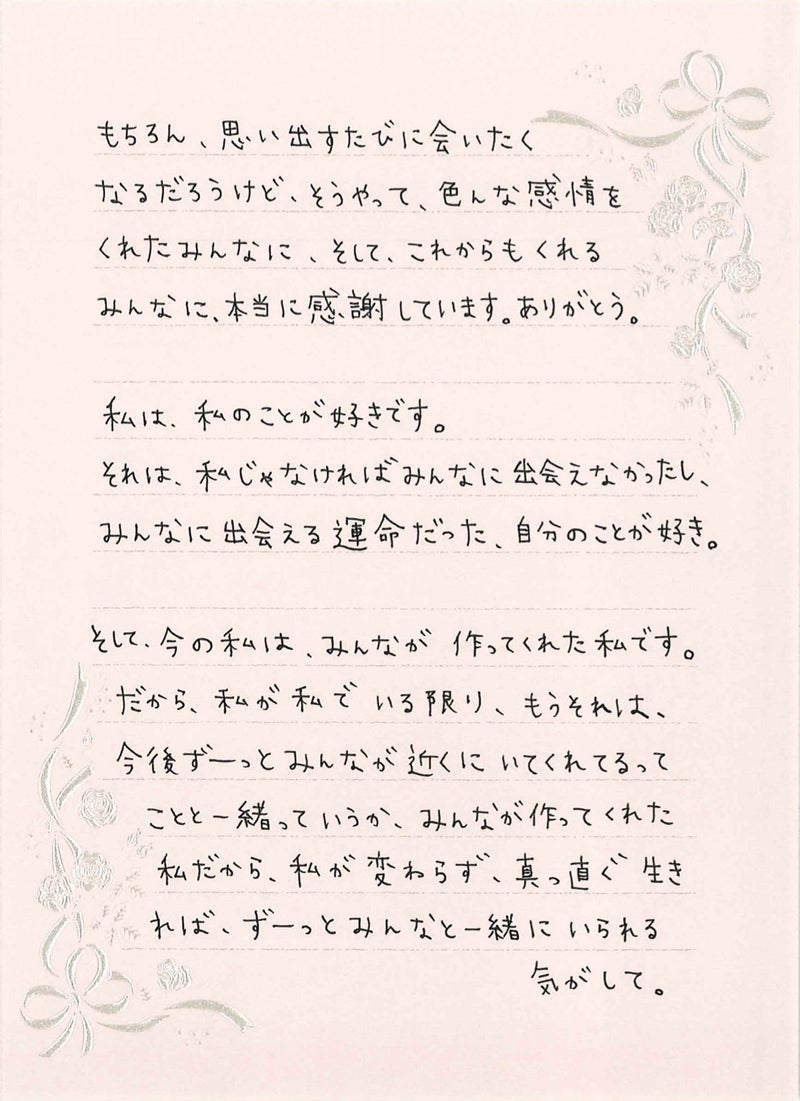 もちろん、思い出すたびに会いたく
なるだろうけど、そうやって、色んな感情を
くれたみんなに、そして、これからもくれる
みんなに、本当に感謝しています。ありがとう。
私は、私のことが好きです。
それは、私じゃなければみんなに出会えなかったし、
みんなに出会える運命だった、自分のことが好き。
そして、今の私は、みんなが作ってくれた私です。
だから、私が私でいる限り、もうそれは、
今後ずーっとみんなが近くにいてくれてるって
ことと一緒っていうか、みんなが作ってくれた
私だから、私が変わらず、真っ直ぐ生き
れば、ずーっとみんなと一緒にいられる
気がして。